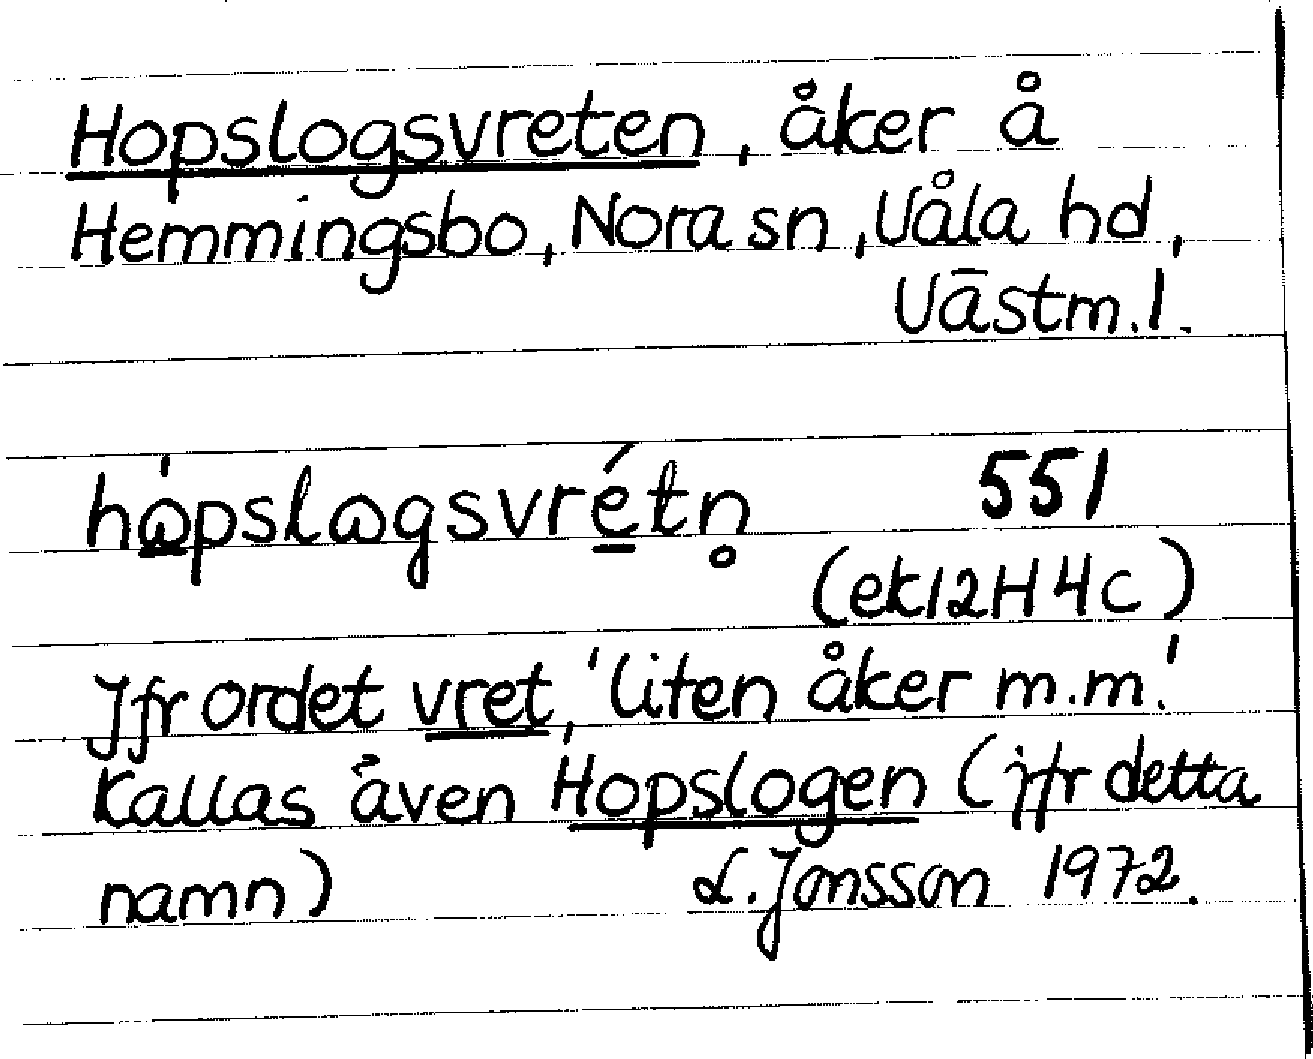 Hopslogsvreten, åker å
Hemmingsbo, Nora sn, Våla hd,
Västm.l.
hɷ́pslɷgsvrétn̥ 551
(ek12H4c)
Jfr ordet vret, 'liten åker m.m.'
Kallas även Hopslogen (jfr detta
namn) L. Jonsson 1972.